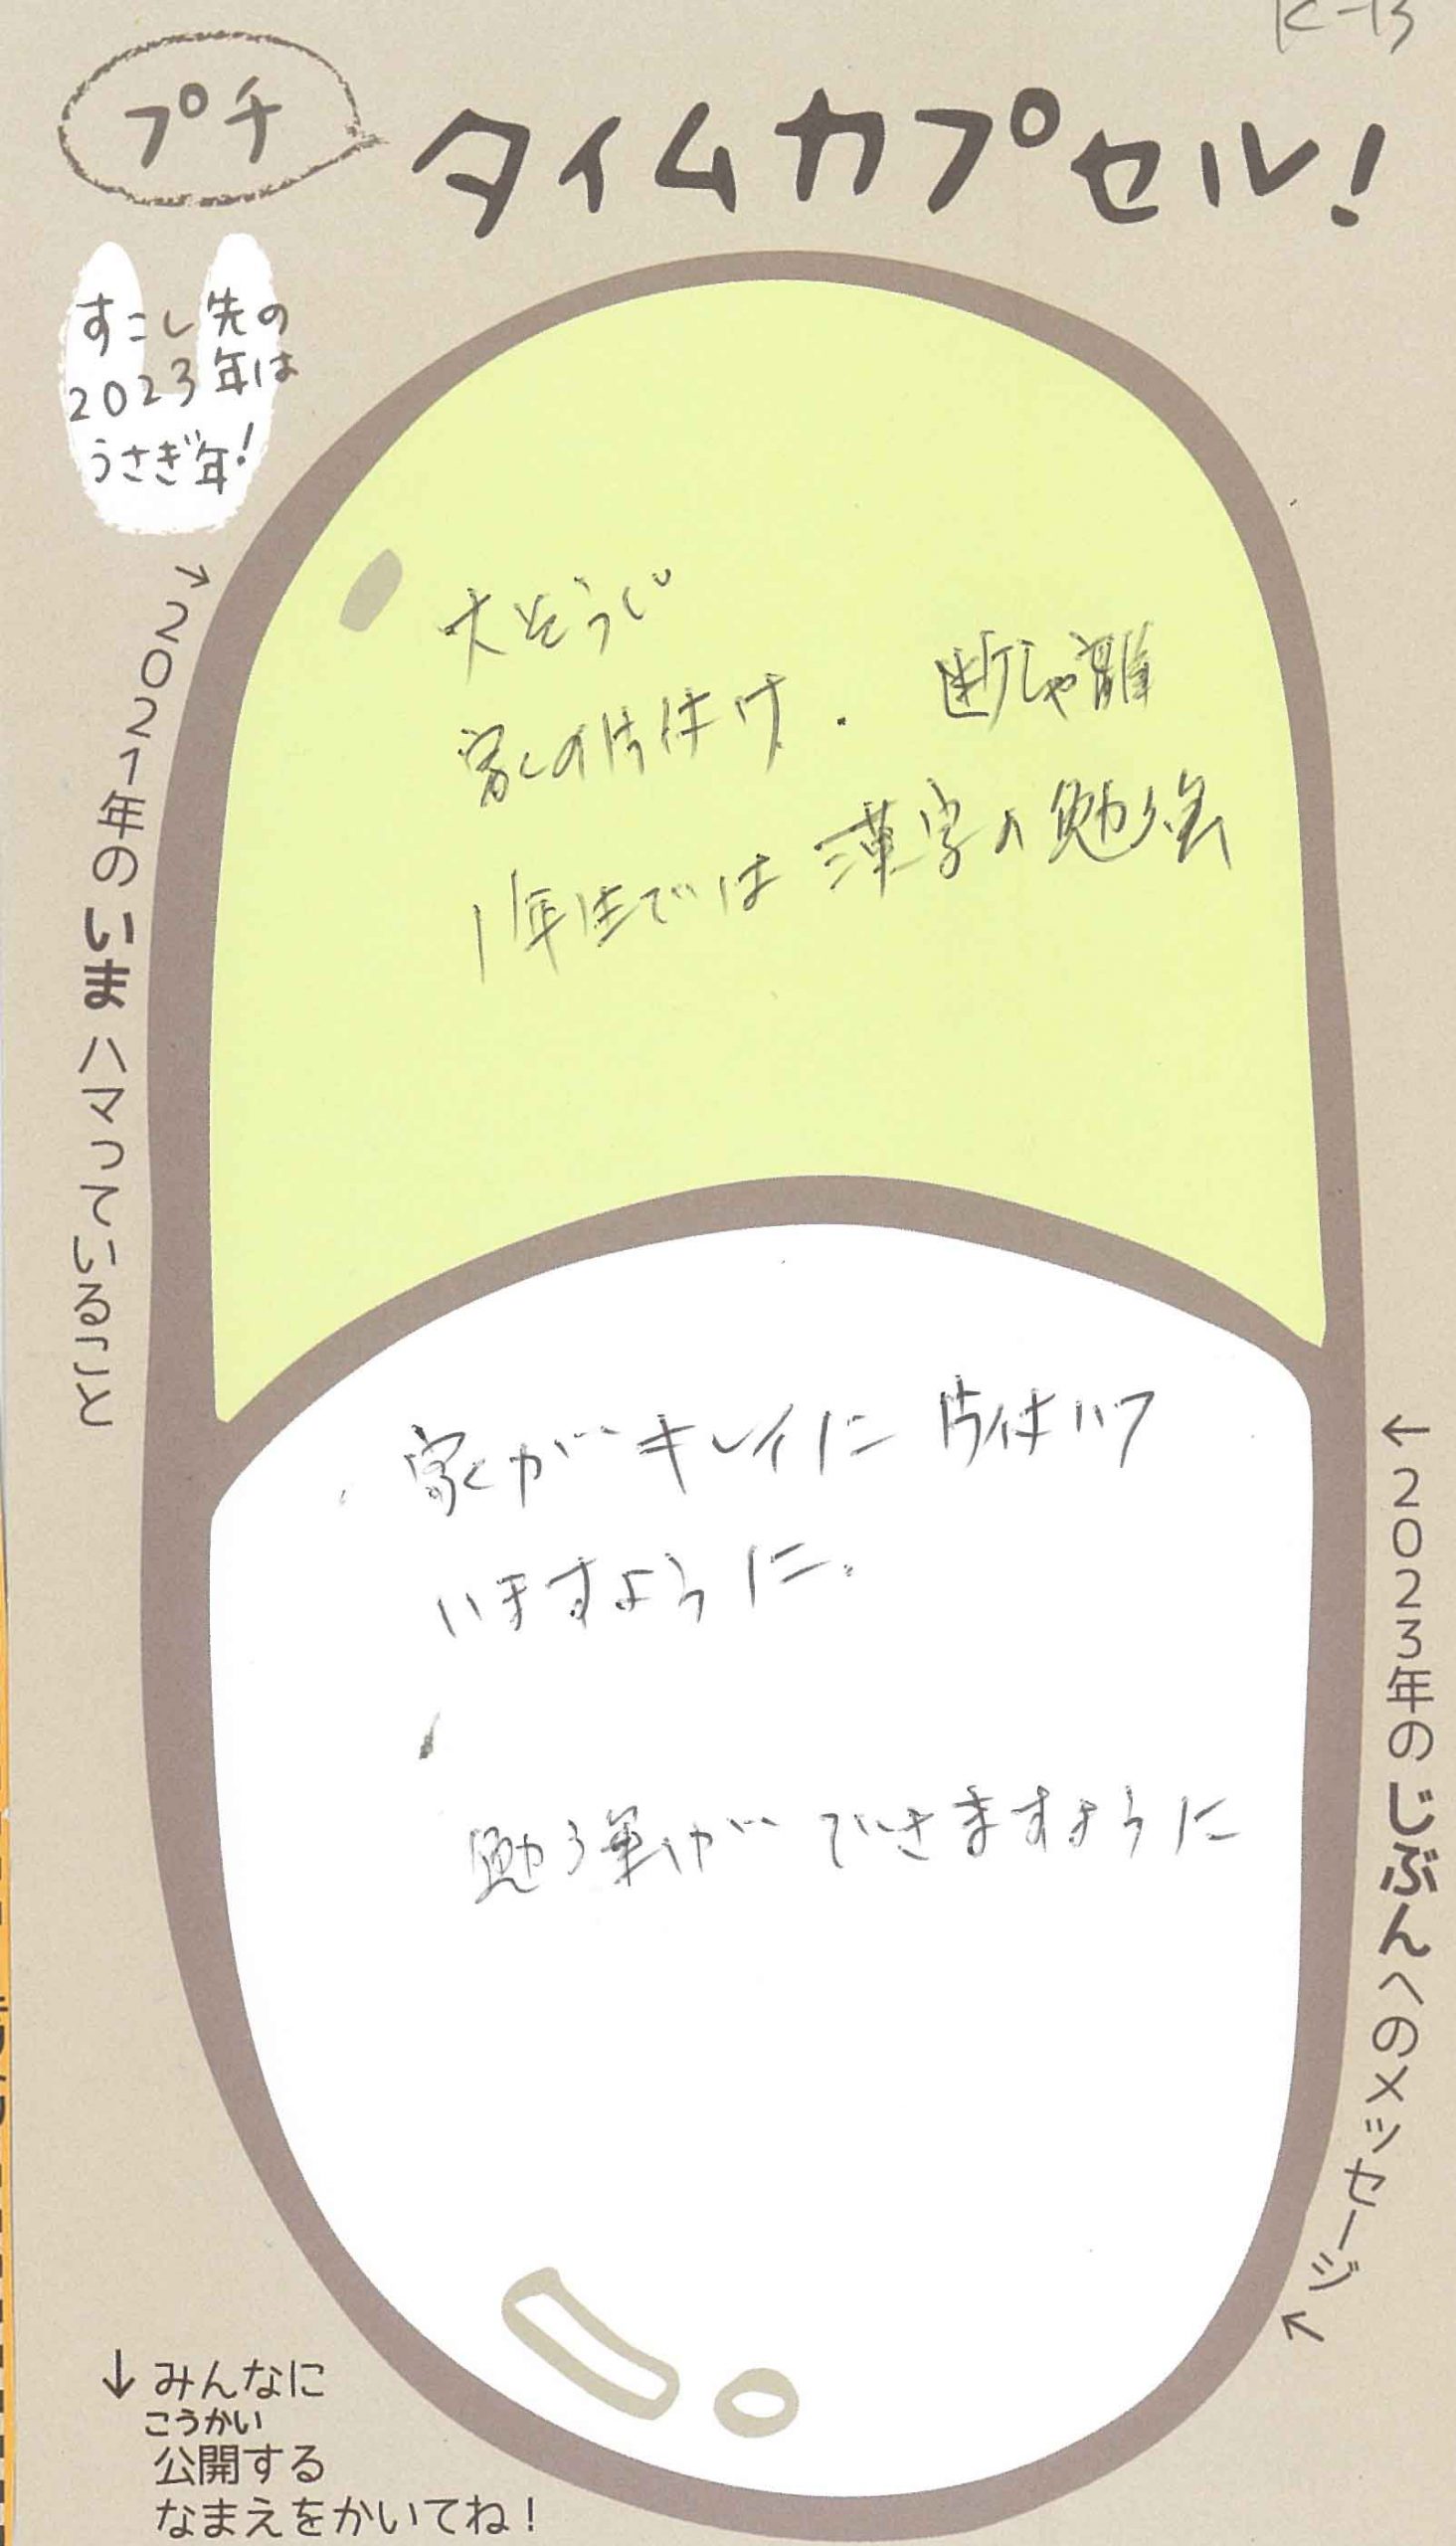 K-13
プチ
タイムカプセル!
すこし先の
2023年は
うさぎ年!
→2021年のいまハマっていること
大そうじ
家の片付け. 断しゃ離
1年生では漢字の勉強
←2023年のじぶんへのメッセージ↖
家がキレイに片付いて
いますように.
勉強がができますように
↓みんなに
こうかい
公開する
なまえをかいてね!